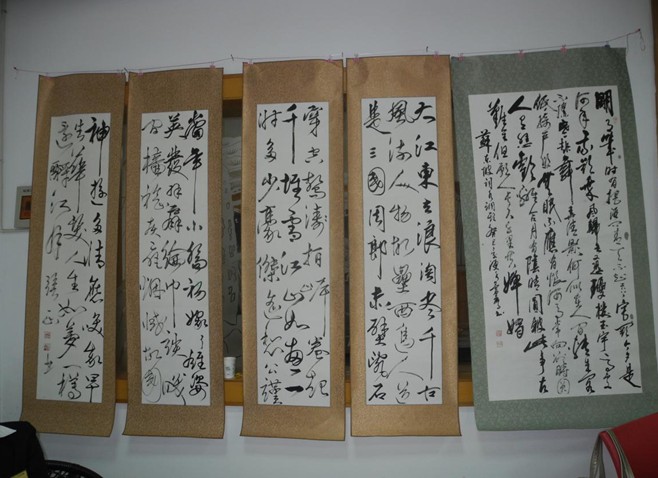 明月幾時有把酒問青天不知天上宮闕今夕是
何年我欲乘風歸去又恐瓊樓玉宇高處
不勝寒起舞弄清影何似在人間轉朱閣
低綺戶照無眠不應有恨何事長向別時圓
人有悲歡離合月有陰晴圓缺此事古
難全但願人長久千里共嬋娟
蘇東坡詞水調歌頭
大江東去浪淘尽千古
風流人物故壘西邊人道
是三國周郎赤壁亂石
穿空驚濤拍岸卷起
千堆雪江山如畫一
時多少豪傑遙想公瑾
當年小喬初嫁了雄姿
英發羽扇綸巾談笑
間檣櫓灰飛煙滅故國
神遊多情應笑我早
生華髮人生如夢一樽
還酹江月